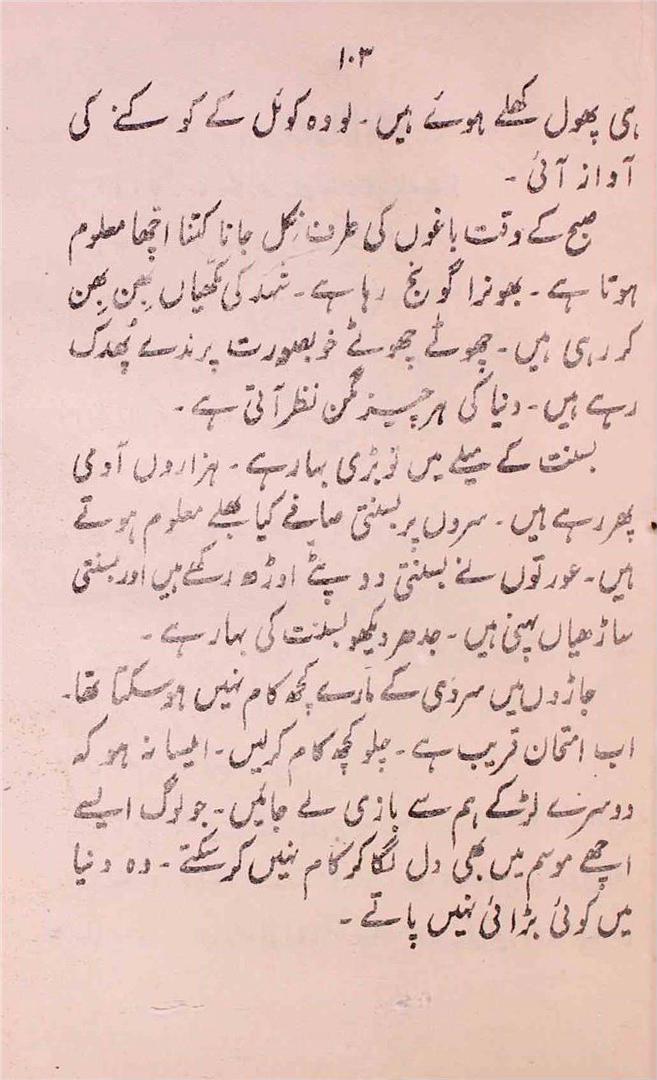 ۱۰۳
ہی پھول کھلے ہوئے ہیں۔ لو وہ کوئل کے کوکنے کی
آواز آئی۔
صبح کے وقت باغوں کی طرف نکل جانا کتنا اچھا معلوم
ہوتا ہے۔ بھونرا گونج رہا ہے۔ شہد کی مکھیاں بھن بھن
کر رہی ہیں۔ چھوٹے چھوٹے خوبصورت پرندے پُھدک
رہے ہیں۔ دنیا کی ہر چیز مگن نظر آتی ہے۔
بسنت کے میلے میں تو بڑی بہار ہے۔ ہزاروں آدمی
پھر رہے ہیں۔ سروں پر بسنتی صافے کیا بھلے معلوم ہوتے
ہیں۔ عورتوں نے بسنتی دوپٹے اوڑھ رکھے ہیں اور بسنتی
ساڑھیاں پہنی ہیں۔ جدھر دیکھو بسنت کی بہار ہے۔
جاڑوں میں سردی کے مارے کچھ کام نہیں ہو سکتا تھا۔
اب امتحان قریب ہے۔ چلو کچھ کام کرلیں۔ ایسا نہ ہو کہ
دوسرے لڑکے ہم سے بازی لے جائیں۔ جو لوگ ایسے
اچھے موسم میں بھی دل لگا کر کام نہیں کر سکتے۔ وہ دنیا
میں کوئی بڑائی نہیں پاتے۔